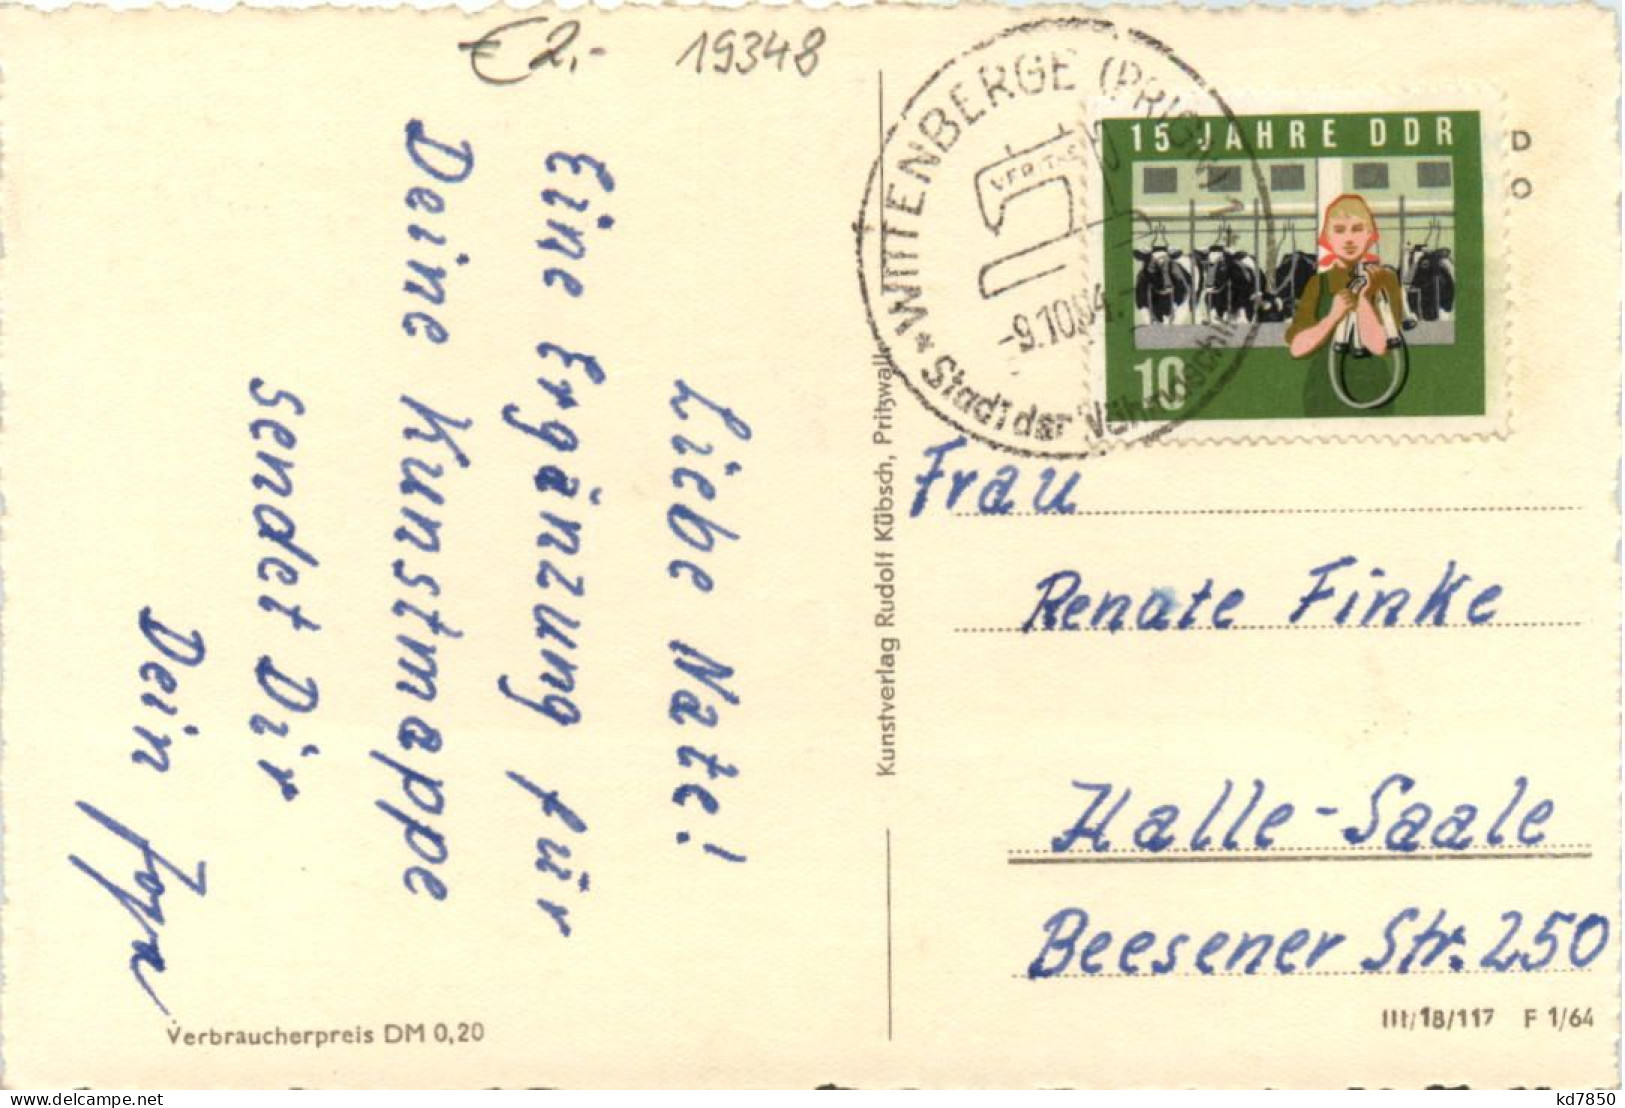 € 2,- 19348
WITTENBERGE (PRIGN) 1
VERITAS
-9.10.64.-
* Stadt der Nähmaschinen *
15 JAHRE DDR
10
D
O
Liebe Nate!
Eine Ergänzung für
Deine Kunstmappe
sendet Dir
Dein
Verbraucherpreis DM 0,20
Kunstverlag Rudolf Kübsch, Pritzwalk
Frau
Renate Finke
Halle-Saale
Beesener Str. 250
III/18/117 F 1/64
kd7850